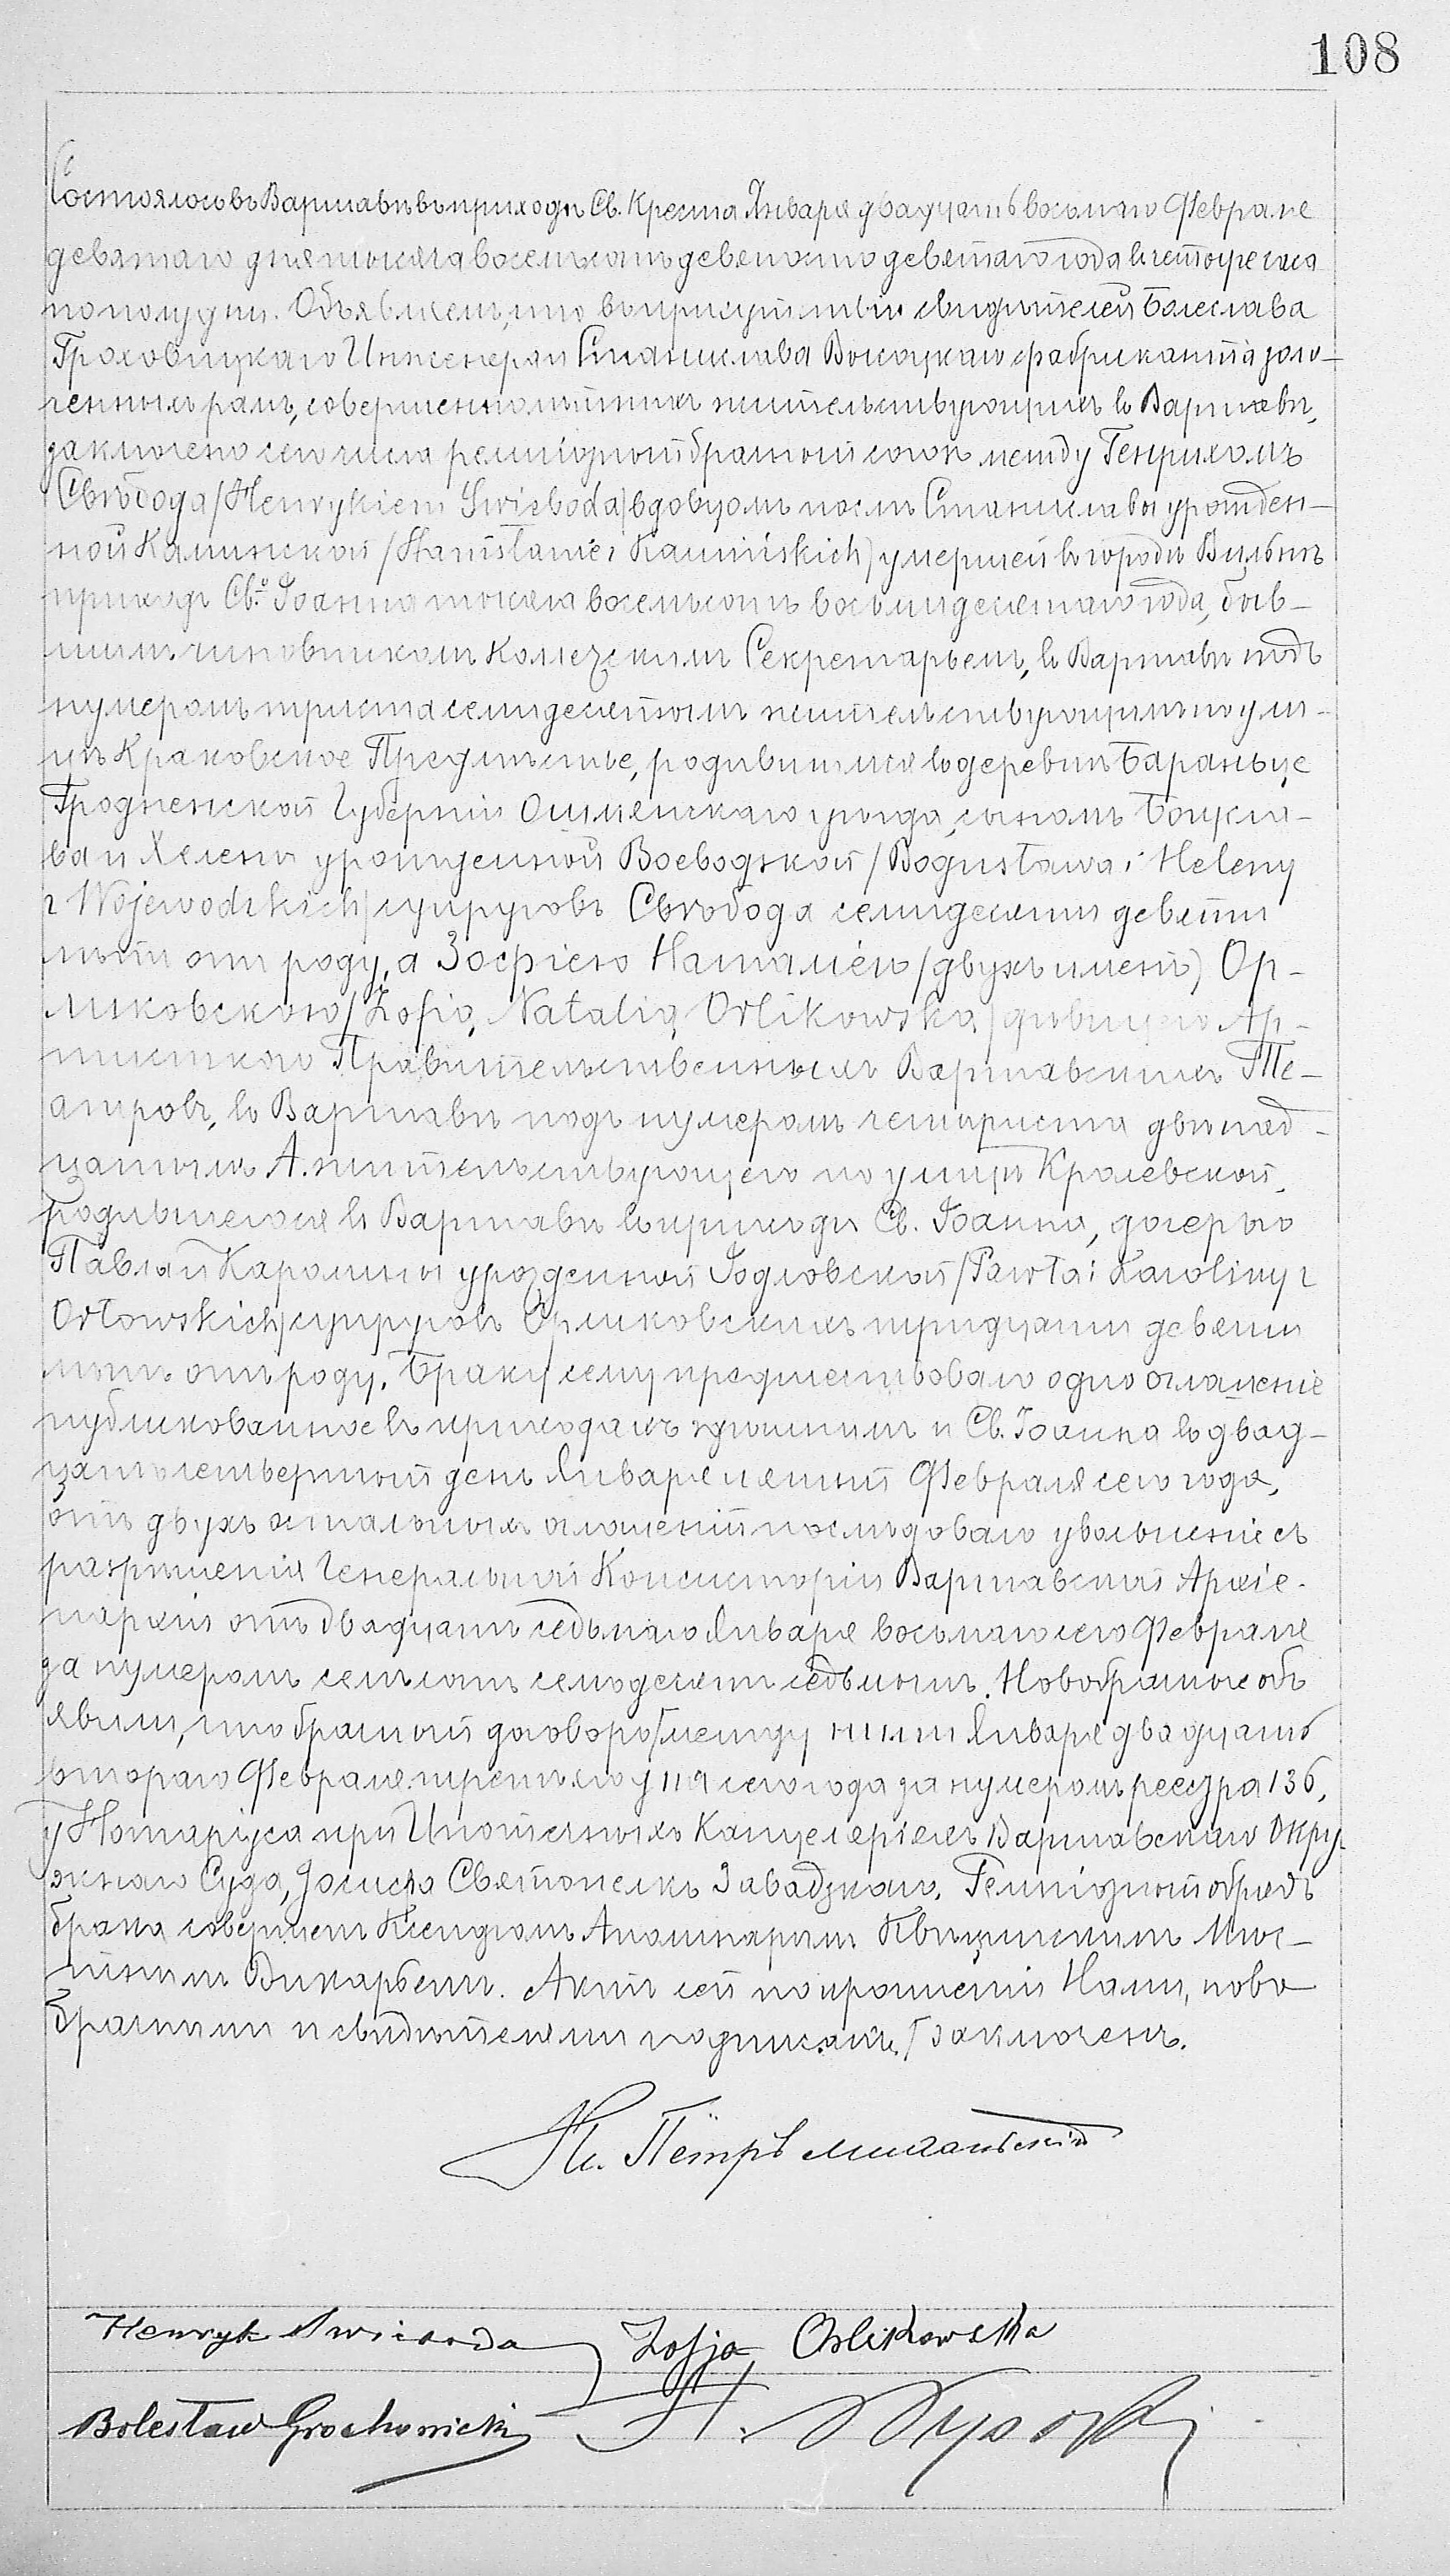 108
Состоялось въ Варшавѣ въ приходѣ Св. Креста Января двадцать восьмаго Февраля
девятаго дня тысяча восемьсотъ девяносто девятаго года въ четыре часа
по полудни. Объявляемъ, что въ присутствіи свидѣтелей Болеслава
Гроховицкаго Инженера и Станислава фабриканта золо-
ченныхъ рамъ, совершеннолѣтнихъ жительствующихъ въ Варшавѣ,
заключенъ сего числа религіозный брачный союзъ между Генрихомъ
Свѣбода /Henrykiem Swieboda/ вдовцомъ послѣ Станиславы урожден-
ной Каминской /Stanisławie z Kamińskich/ умершей въ городѣ Вильнѣ
приходѣ Св. Іоанна тысяча восемьсотъ восьмидесятаго года, быв-
шимъ чиновникомъ Коллежскимъ Секретарьемъ, въ Варшавѣ подъ
нумеромъ триста семидесятымъ жительствующимъ по ули-
цѣ Краковское Предмѣстье, родившимся въ деревнѣ Бараньце
Гродненской Губерніи Ошмянскаго уѣзда, сыномъ Богусла-
ва и Хелены урожденной Воеводзкой /Bogusława i Heleny
z Wojewodzkich/ супруговъ Свѣбода семидесяти девяти
лѣтъ отъ роду, а Зофіею Наталіею /двухъ именъ/ Ор-
ликовскою /Zofią Natalią Orlikowską/ дѣвицею Ар-
тисткою Правительственныхъ Варшавскихъ Те-
атровъ, въ Варшавѣ подъ нумеромъ четыреста двѣнад-
цатымъ А. жительствующею по улицѣ Кролевской,
родившеюся въ Варшавѣ въ приходѣ Св. Іоанна, дочерью
Павла и Каролины урожденной /Pawła i Karoliny z
Orłowskich/ супруговъ Орликовскихъ тридцати девяти
лѣтъ отъ роду. Браку сему предшествовало одно оглашеніе
публикованное въ приходахъ здѣшнемъ и Св. Іоанна въ двад-
цать четвертый день Января пятый Февраля сего года,
отъ двухъ остальныхъ оглашеній послѣдовало увольненіе съ
разрѣшенія Генеральной Консисторіи Варшавской Архіе-
пархіи отъ двадцать седьмаго Января восьмаго сего Февраля
за нумеромъ семьсотъ семьдесятъ седьмымъ. Новобрачные объ
явили, что брачный договоръ между ними Января двадцать
втораго Февраля третьяго дня сего года за нумеромъ реестра 136,
у Нотаріуса при Ипотечныхъ Канцеляріяхъ Варшавскаго Окру-
жнаго Суда, Святополкъ Завадзкаго. Религіозный обрядъ
брака совершенъ Ксендзомъ Мѣс-
тнымъ Викарьемъ. Актъ сей по прочтеніи Нами, ново
брачными и свидѣтелями подписанъ / заключенъ.
Кс. Пётръ
Henryk Swieboda Zofja Orlikowska
Bolesław Grochowicki